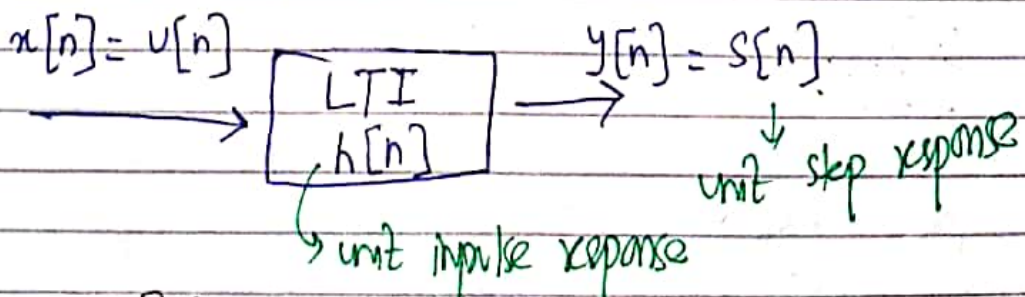 x[n] = u[n]
LTI
h[n]
y[n] = s[n].
unit step response
unit impulse response